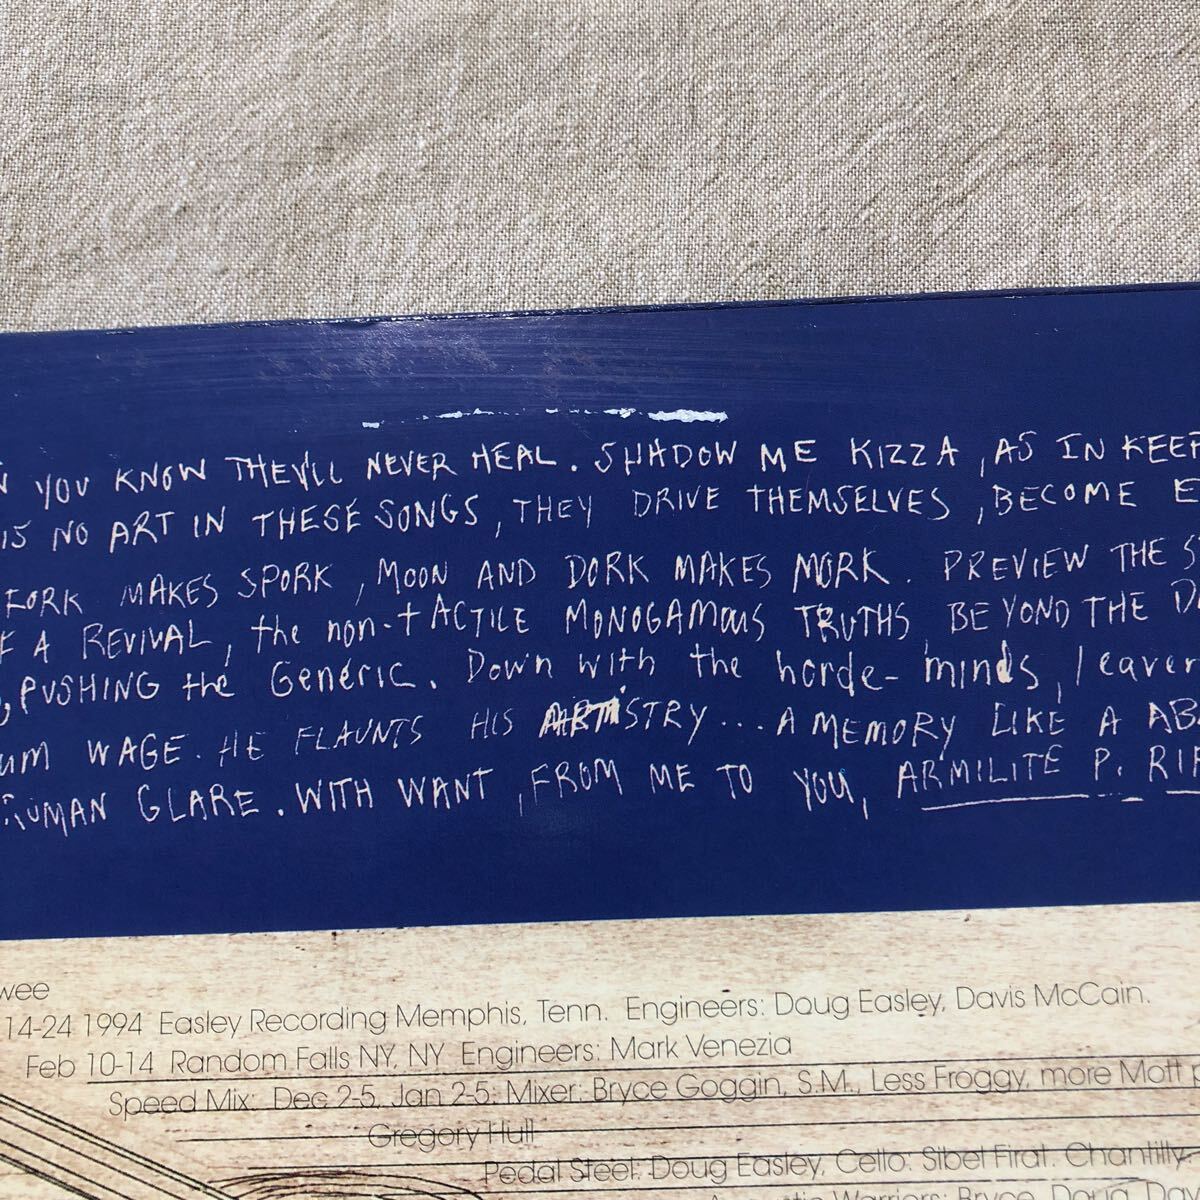 YOU KNOW THEY'LL NEVER HEAL. SHADOW ME KIZZA, AS IN KEEP
IS NO ART IN THESE SONGS, THEY DRIVE THEMSELVES, BECOME E
FORK MAKES SPORK, MOON AND DORK MAKES MORK. PREVIEW THE S
F A REVIVAL, the non-tACTILE MONOGAMous TRUTHS, BEYOND THE D
PUSHING the Generic. Down with the horde-minds, leaven
um WAGE. HE FLAUNTS HIS ARTISTRY... A MEMORY LIKE A AB
RUMAN GLARE. WITH WANT, FROM ME TO YOU, ARMILITE P. RIF
wee
14-24 1994 Easley Recording Memphis, Tenn. Engineers: Doug Easley, Davis McCain.
Feb 10-14 Random Falls NY, NY Engineers: Mark Venezia
Speed Mix: Dec 2-5, Jan 2-5: Mixer: Bryce Goggin, S.M., Less Froggy, more Mott p
Gregory Hull
Pedal Steel: Doug Easley, Cello: Sibel Firat. Chantilly-
Warriors: Bryce, Doug, Dav